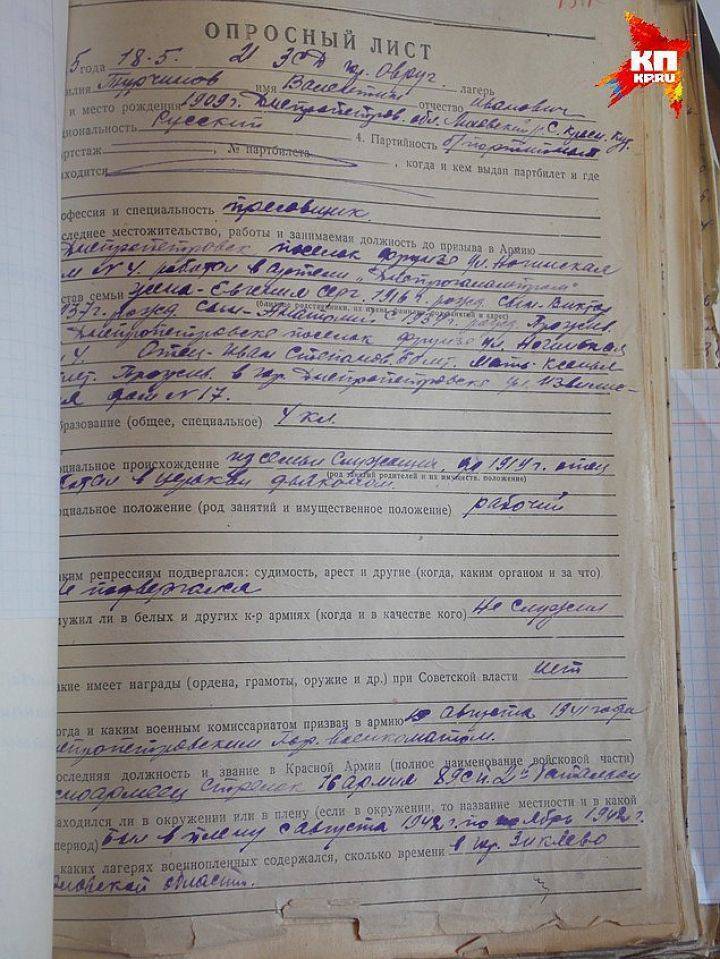 КП
KP.RU
ОПРОСНЫЙ ЛИСТ
5 года 18-5. лагерь
илия Турчинов имя Валентин отчество Иванович
и место рождения 1909 г. Днепропетров. обл.
циональность Русский 4. Партийность б/партийный
артстаж , № партбилета , когда и кем выдан партбилет и где
аходится
офессия и специальность
следнее местожительство, работы и занимаемая должность до призыва в Армию
Днепропетровск поселок фрунзе ул. Ногинская
м № 4. работал в артели
став семьи жена - Евгения Серг. 1916 г. рожд. сын - Виктор
(близкие родственники, их имена, фамилии, занятия и адрес)
937 г. рожд. сын - Анатолий 1939 г. рожд. Прожив.
Днепропетровске поселок фрунзе ул. Ногинская
4 Отец - Иван Степанов. Мать - Ксенья
лет. Прожив. в гор. Днепропетровске ул.
я дом № 17.
бразование (общее, специальное) 4 кл.
оциальное происхождение из семьи до 1914 г. отец
(род занятий родителей и их имуществ. положение)
в церкви
оциальное положение (род занятий и имущественное положение) рабочий
аким репрессиям подвергался: судимость, арест и другие (когда, каким органом и за что)
Не подвергался
лужил ли в белых и других к-р армиях (когда и в качестве кого) Не служил
акие имеет награды (ордена, грамоты, оружие и др.) при Советской власти Нет
огда и каким военным комиссариатом призван в армию Августа 1941 года
непропетровским Гор. военкоматом.
оследняя должность и звание в Красной Армии (полное наименование войсковой части)
сноармеец стрелок 16 армия 2й баталион
аходился ли в окружении или в плену (если в окружении, то название местности и в какой
период) Был в плену с Августа 1942 г. по ноябрь 1942 г.
каких лагерях военнопленных содержался, сколько времени в гор.
области.